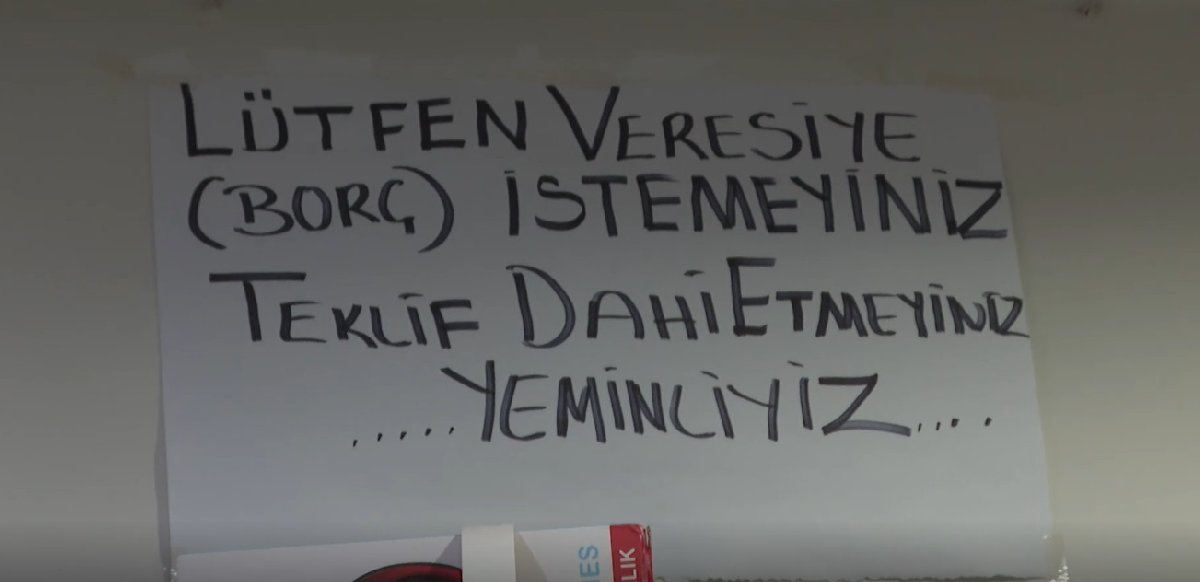 LÜTFEN VERESİYE
(BORÇ) İSTEMEYİNİZ
TEKLİF DAHİ ETMEYİNİZ
.....YEMİNLİYİZ....